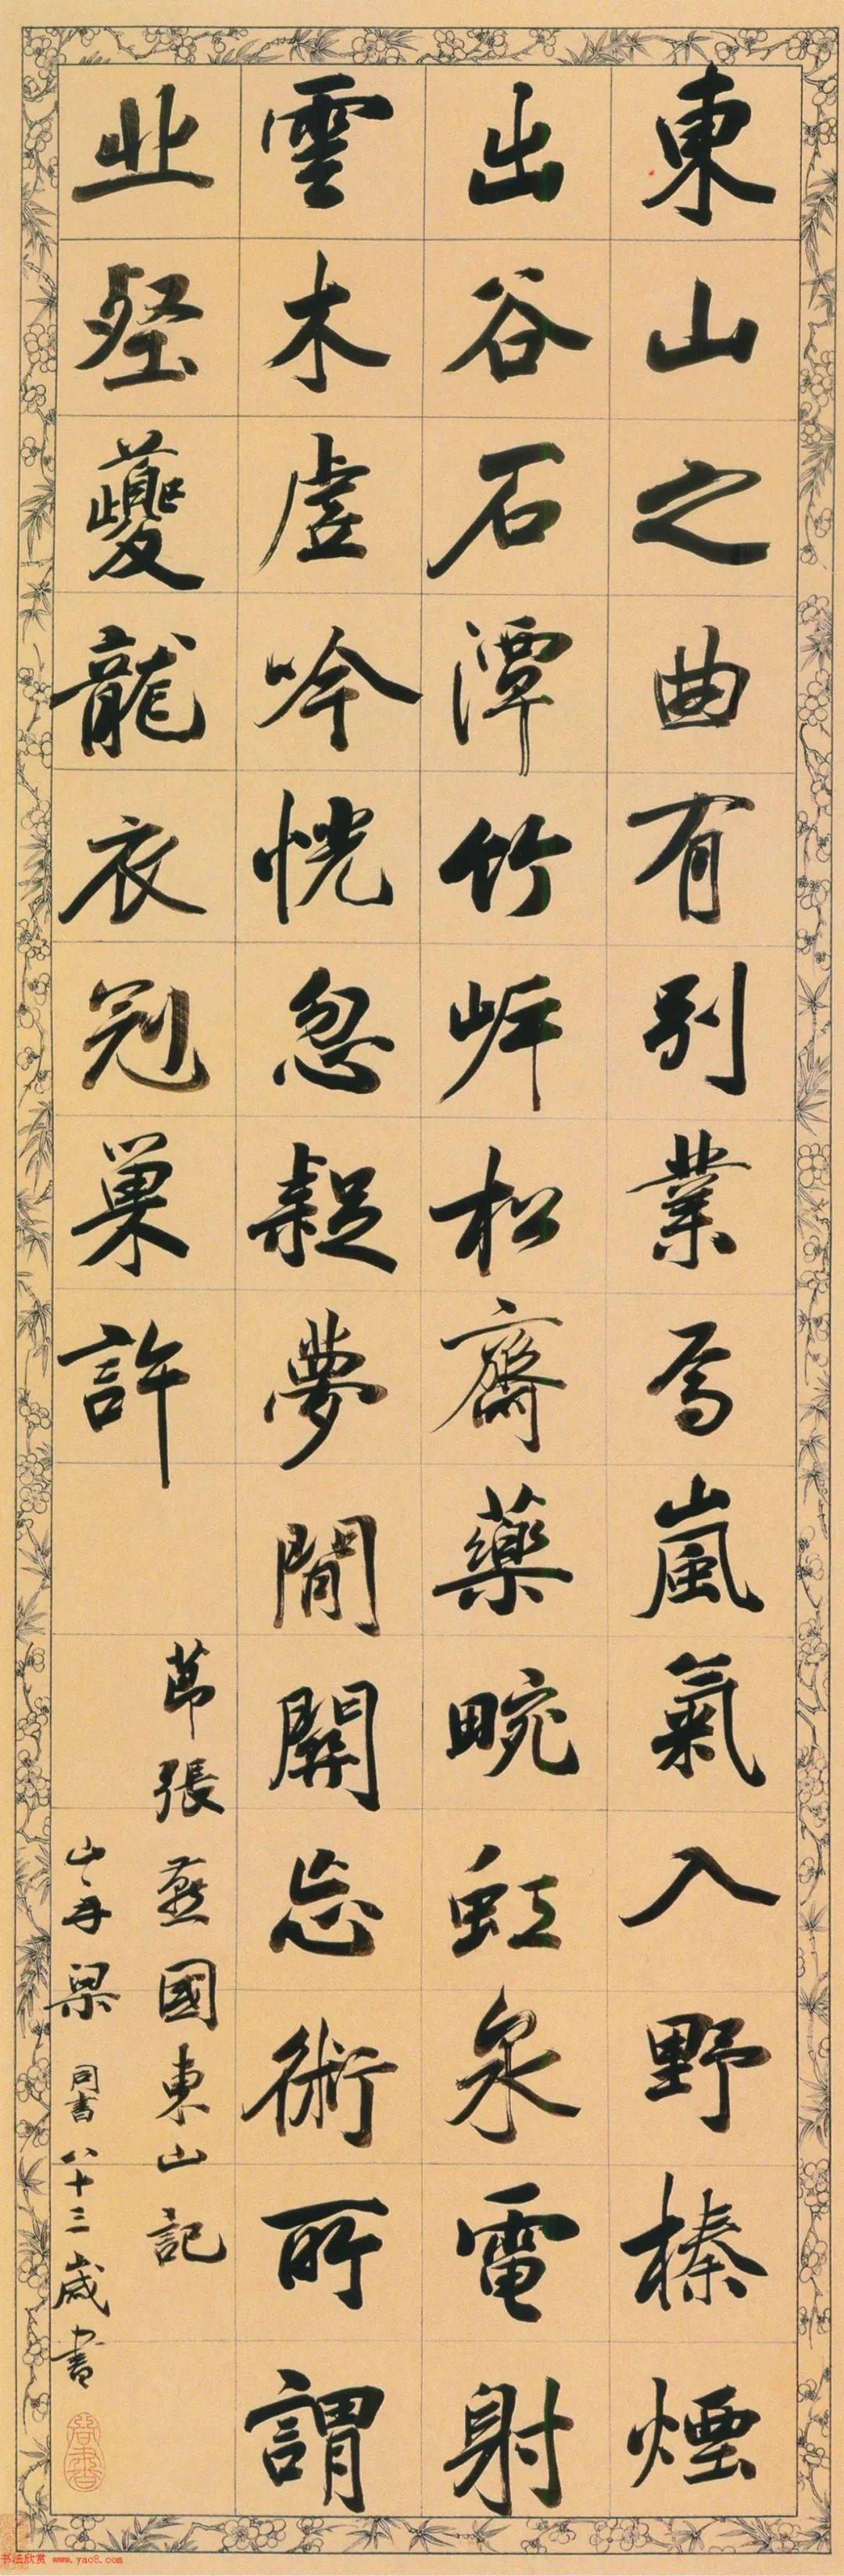 東山之曲有別業焉嵐氣入野榛煙
出谷石潭竹岸松齋藥畹虹泉電射
雲木虛吟恍忽疑夢閒關忘術所謂
丘壑夔龍衣冠巢許
節張燕國東山記
山舟梁同書八十三歲書
书法欣赏 www.yac8.com